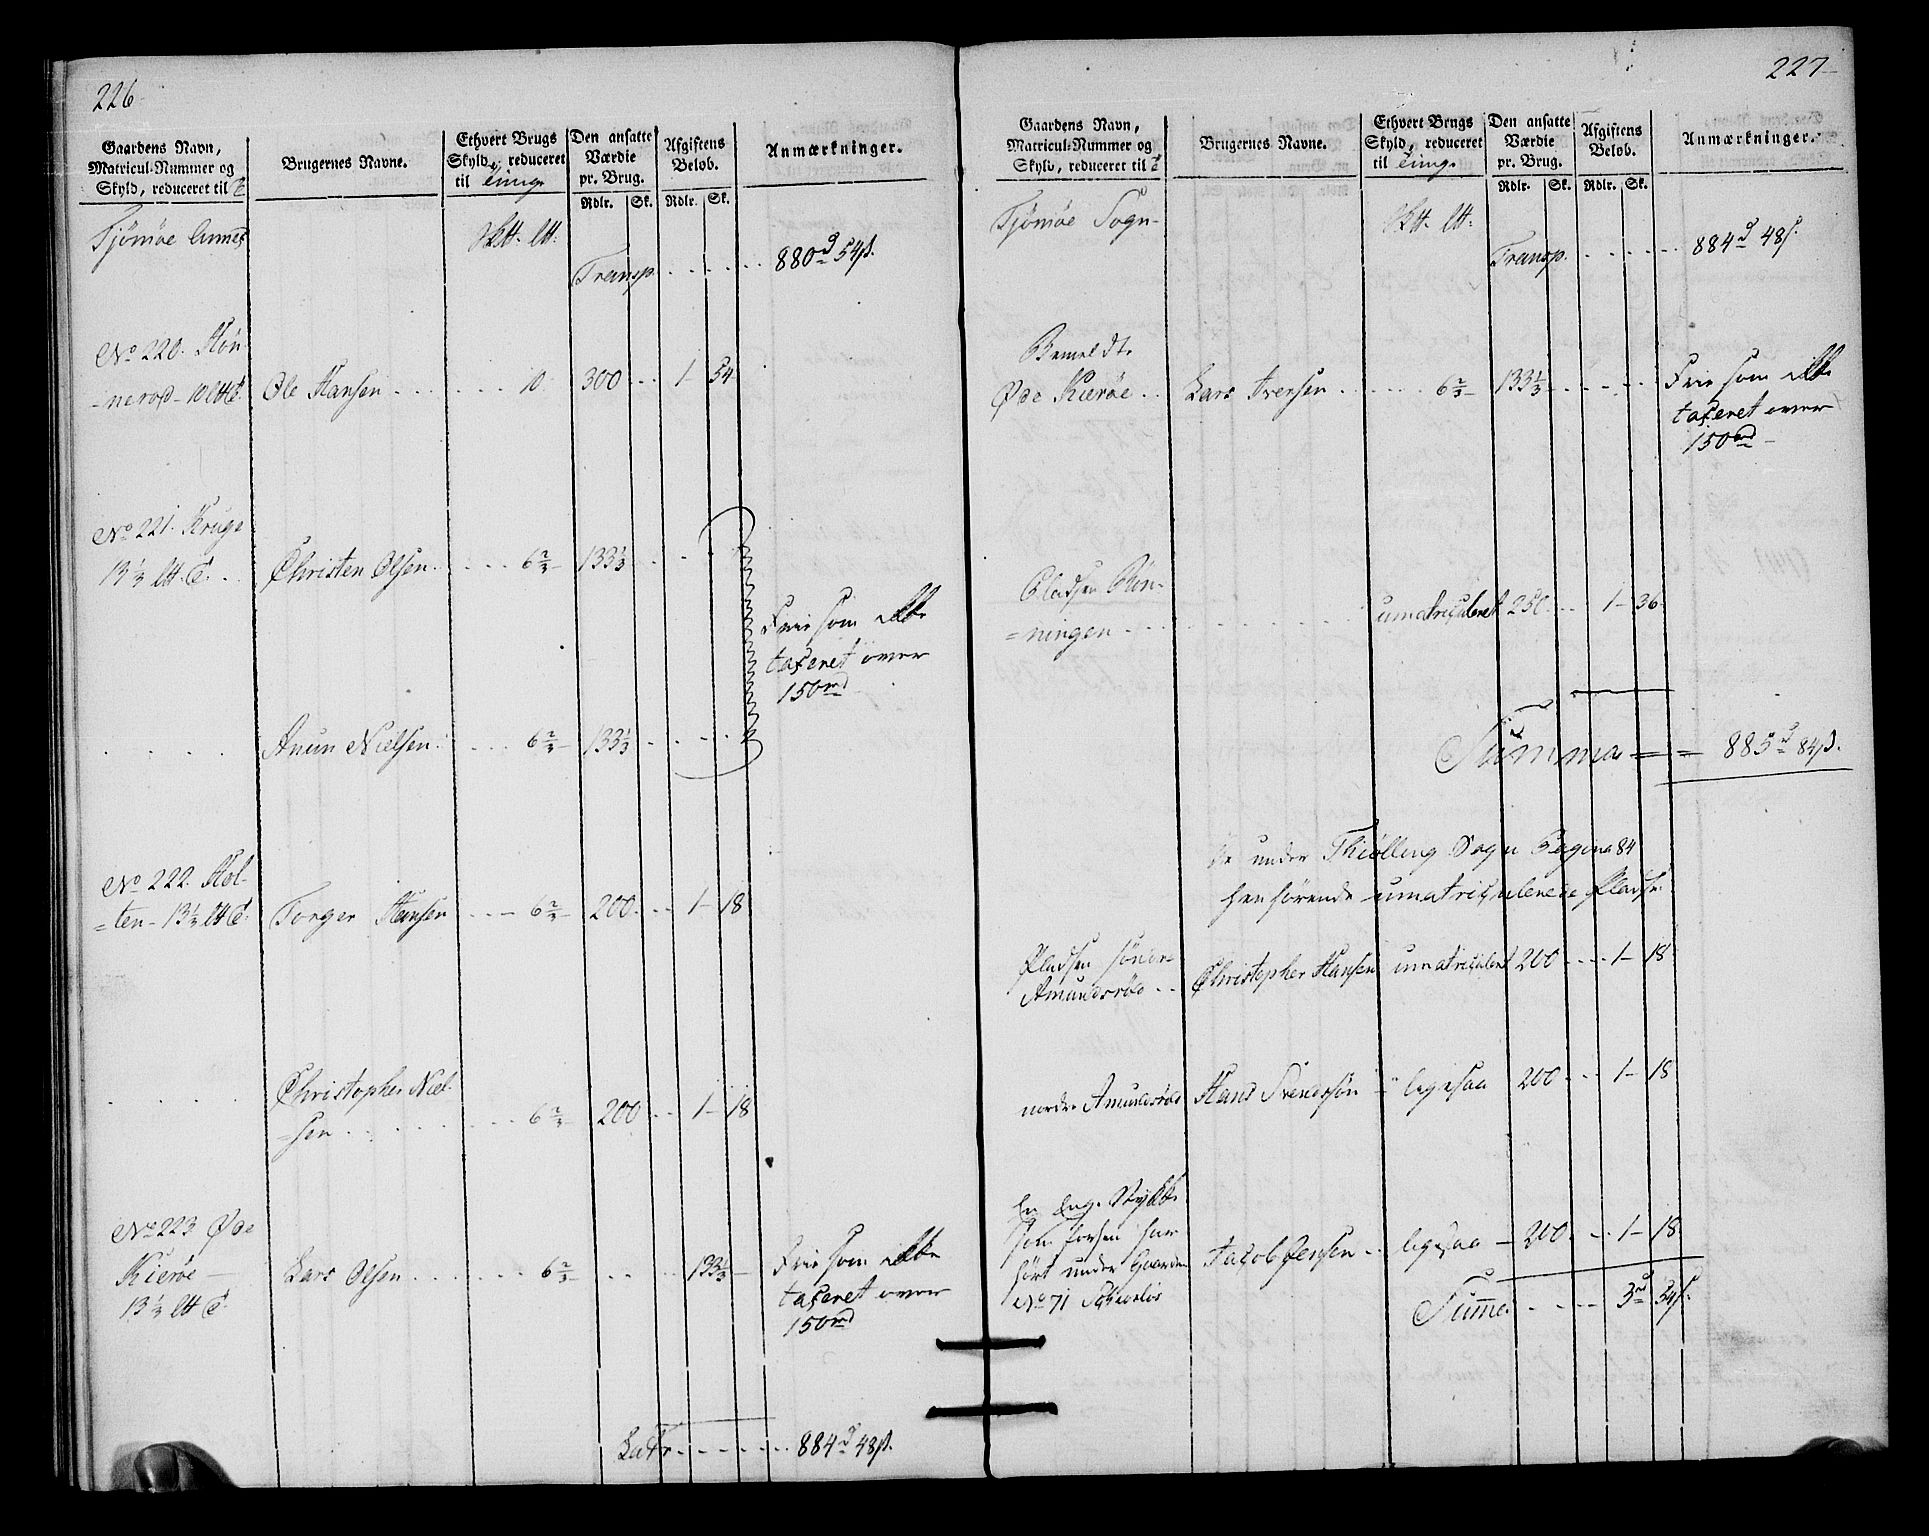 226
Gaardens Navn, Matricul-Nummer og Skyld, reduceret til ℔
Brugernes Navne.
Ethvert Brugs Skyld, reduceret til
Den ansatte Værdie pr. Brug.
Afgiftens Beløb.
Anmærkninger.
Rdlr. Sk. Rdlr. Sk.
Tjømøe Annex
Transp. . . . . . 880 d 54 ß.
No 220. Høn-
-nerød - 10 ltt Ole Hansen . . . 10. 300 . . 1 - 54
No 221. Kruge
13 1/3 ltt. Christen Olsen . . . 6 2/3 - 133 1/3 . . .
Frie som ikke
taxeret over
150 rd
Anun Nielsen . . . 6 2/3 - 133 1/3 . . . .
No 222. Hol-
=ten - 13 1/3 ltt Torger Hansen - - - 6 2/3 - 200 . . 1 - 18
Christopher Niel-
-sen . . . . . . 6 2/3 - 200 . . 1 - 18
No 223 Øde
Kierøe —
13 1/3 ltt
Lars Olsen . . . . . . 6 2/3 - . . . 133 1/3 —
Frie som ikke
taxeret over
150 rd
Latr . . . . . . 884 d 48 ß.
227
Gaardens Navn, Matricul-Nummer og Skyld, reduceret til ℔
Brugernes Navne.
Ethvert Brugs Skyld, reduceret til
Den ansatte Værdie pr. Brug.
Afgiftens Beløb.
Anmærkninger.
Rdlr. Sk. Rdlr. Sk.
Tjømøe Sogn -
Transp. . . . . . 884 d 48 ß.
Bemeldte
Øde Kierøe . . Lars Iversen . . . . . 6 2/3 - 133 1/3 . . . . .
Frie som ikke
taxeret over
150 rd —
Pladsen Røn-
=ningen . . . . . . umatriculeret 250 . . . 1 - 36
Summa = = 885 d 84 ß.
De under Thiølling Sogn Pagina 84
henhørende umatriculerede Pladse.
Pladsen søndre
Amundsrød . . Christopher Hansen umatriculeret 200 . . . . 1 - 18
nordre Amundsrød Hans Svendssøn - ligesaa 200 . . . 1 - 18
En Eng-Stykke
som forhen har
hørt under Gaarden
No 71
Jacob Jensen . . ligesaa - 200 . . . 1 - 18
Summa . . . . . 3 rd 54 ß.